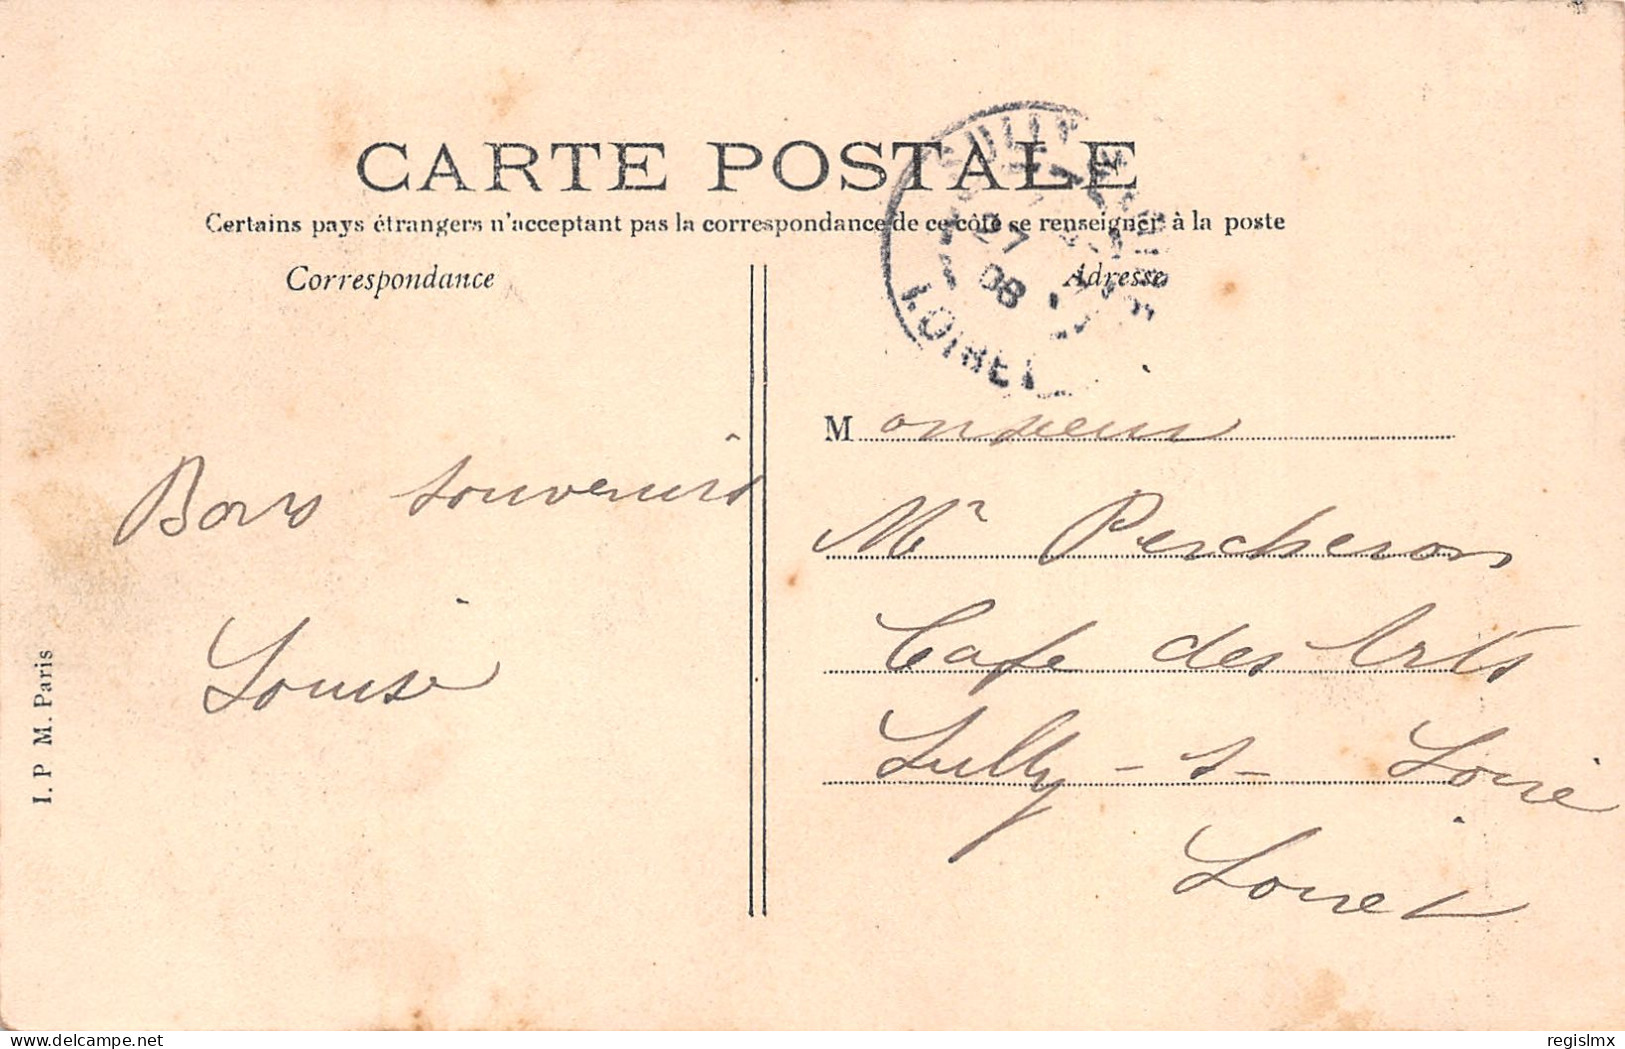 CARTE POSTALE
Certains pays étrangers n'acceptent pas la correspondance de ce côté se renseigner à la poste
Correspondance
Adresse
27
08
LOIRET
Bons souvenirs
Louise
Monsieur
Mr Percheron
Café des Arts
Sully-s-Loire
Loiret
I. P M. Paris
delcampe.net
regislmx